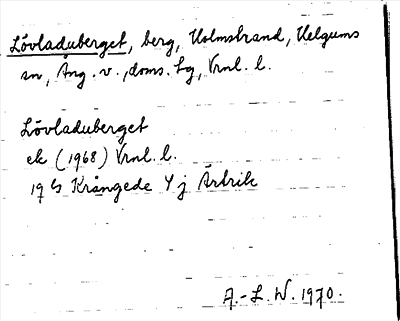 Lövladuberget, berg, Holmstrand, Helgums
sn, Ång. v., doms. tg, Vrnl. l.
Lövladuberget
ek (1968) Vrnl. l.
19 Krångede
A.-L. W. 1970.